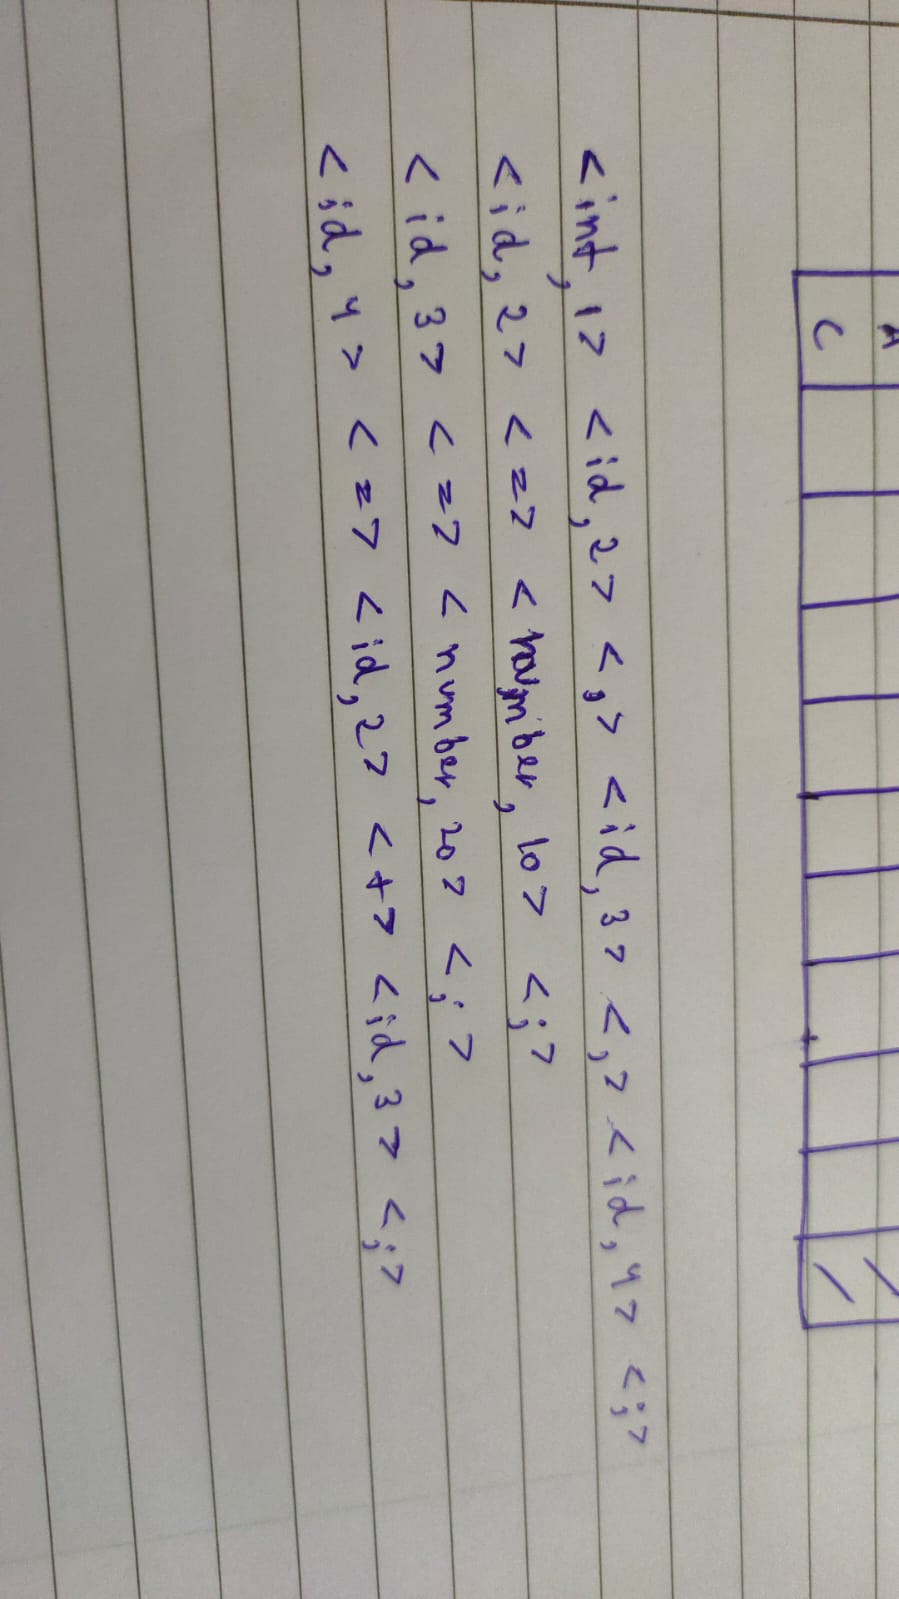 A
C
<int, 1> <id, 2> <,> <id, 3> <,> <id, 4> <;>
<id, 2> <=> <number, 10> <;>
<id, 3> <=> <number, 20> <;>
<id, 4> <=> <id, 2> <+> <id, 3> <;>